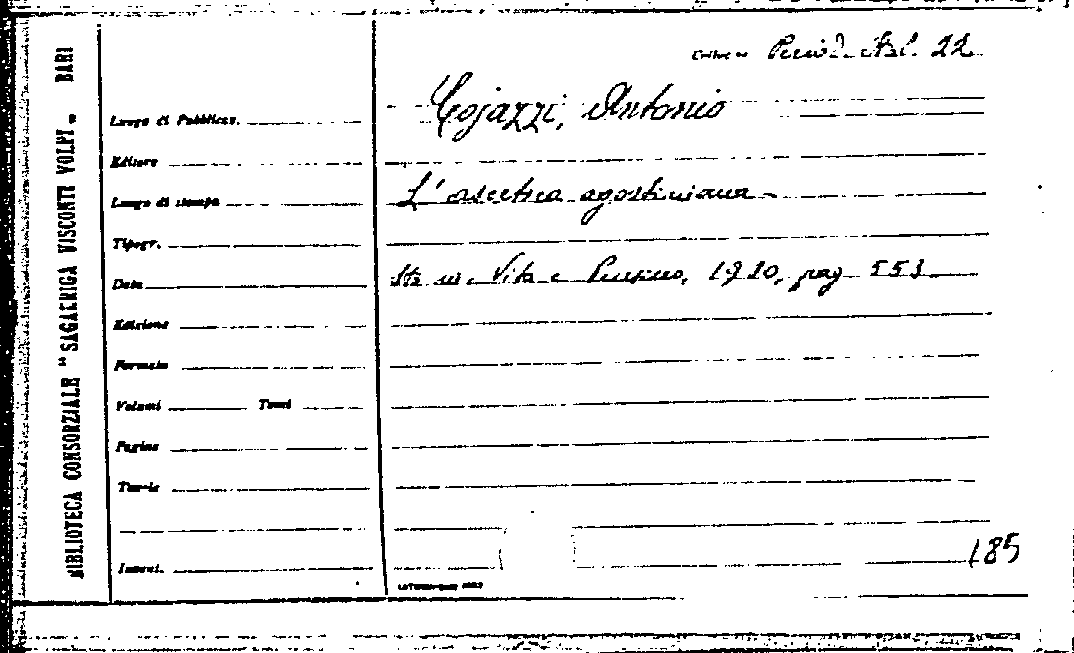 BIBLIOTECA CONSORZIALE "SAGARRIGA VISCONTI VOLPI" BARI
Colloc.ne Period. Ital. 22
Cojazzi, Antonio
Luogo di Pubblicaz.
Editore
L'ascetica agostiniana
Luogo di stampa
Tipogr.
Sta in: Vita e Pensiero, 1930, pag. 553
Data
Edizione
Formato
Volumi Tomi
Pagine
Tavole
Invent.
185